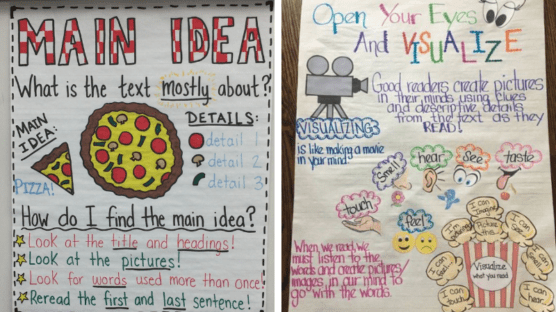 MAIN IDEA
What is the text mostly about?
MAIN
IDEA:
PIZZA!
DETAILS:
detail 1
detail 2
detail 3
How do I find the main idea?
Look at the title and headings!
Look at the pictures!
Look for words used more than once!
Reread the first and last sentence!
Open Your Eyes
And VISUALIZE
Good readers create pictures
in their minds using clues
and descriptive details
from the text as they
READ!
VISUALIZING
is like making a movie
in your mind
Smell
hear
see
taste
touch
feel
When we read, we
must listen to the
words and create pictures/
images in our mind to
go with the words.
I can
Imagine
Picture
this
I can
See
I can
Feel
I can
Touch
I can
Hear
Visualize
what you read